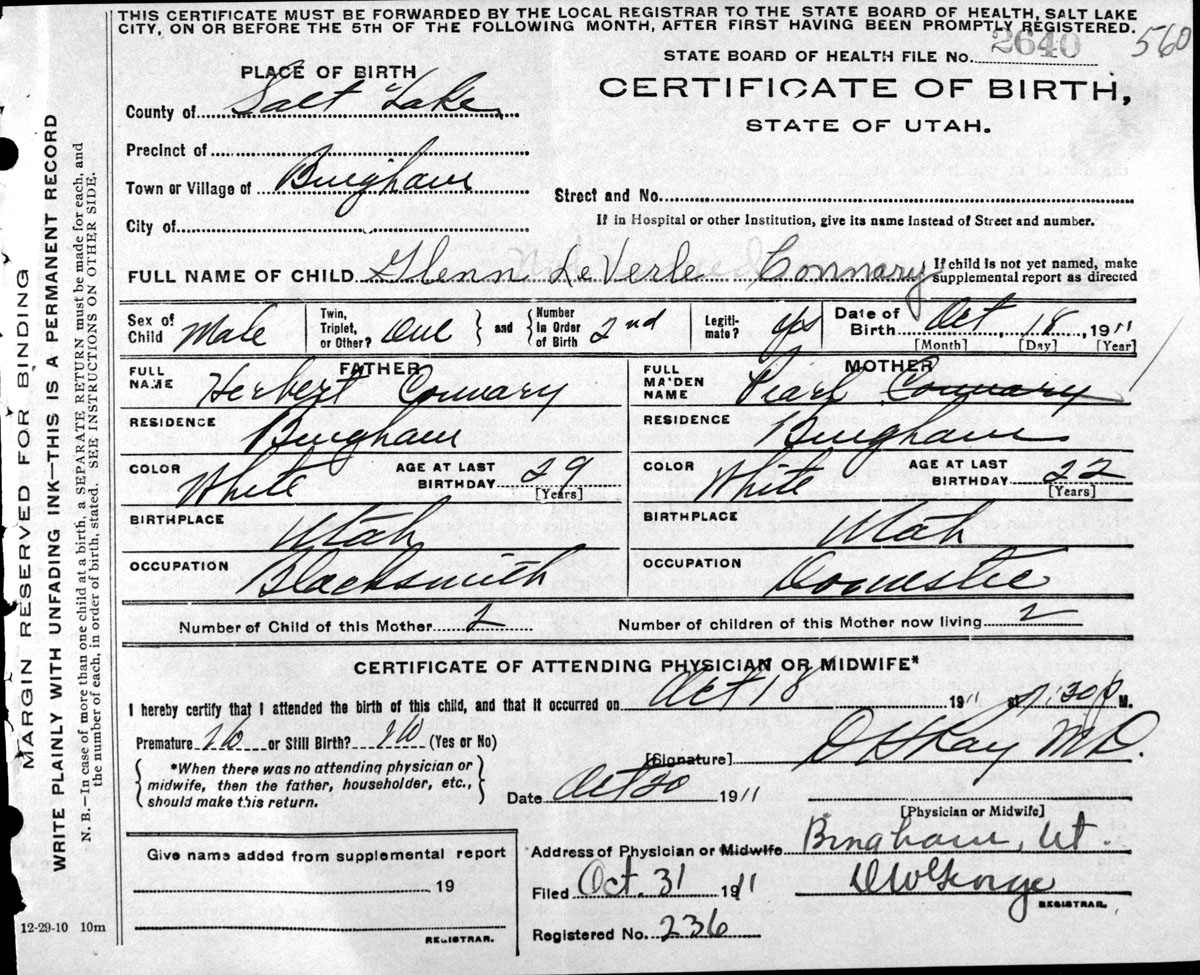 THIS CERTIFICATE MUST BE FORWARDED BY THE LOCAL REGISTRAR TO THE STATE BOARD OF HEALTH, SALT LAKE
CITY, ON OR BEFORE THE 5TH OF THE FOLLOWING MONTH, AFTER FIRST HAVING BEEN PROMPTLY REGISTERED.
560
STATE BOARD OF HEALTH FILE NO. 2640
PLACE OF BIRTH
CERTIFICATE OF BIRTH,
STATE OF UTAH.
County of Salt Lake
Precinct of
Town or Village of Bingham
Street and No.
City of
If in Hospital or other Institution, give its name instead of Street and number.
FULL NAME OF CHILD Glenn LeVerle Connary
If child is not yet named, make
supplemental report as directed
Sex of Child Male Twin, Triplet, or Other? One and Number in Order of Birth 2nd Legiti-mate? yes Date of Birth Oct, 18, 1911
[Month] [Day] [Year]
FATHER
FULL NAME Herbert Conwary
RESIDENCE Bingham
COLOR White AGE AT LAST BIRTHDAY 29
[Years]
BIRTHPLACE Utah
OCCUPATION Blacksmith
MOTHER
FULL MAIDEN NAME Pearl Conwary
RESIDENCE Bingham
COLOR White AGE AT LAST BIRTHDAY 22
[Years]
BIRTHPLACE Utah
OCCUPATION Domestic
Number of Child of this Mother 2 Number of children of this Mother now living 2
CERTIFICATE OF ATTENDING PHYSICIAN OR MIDWIFE*
I hereby certify that I attended the birth of this child, and that it occurred on Oct 18 1911 at 7:30 P M.
Premature No or Still Birth? No (Yes or No)
[Signature] D H Ray M.D.
*When there was no attending physician or
midwife, then the father, householder, etc.,
should make this return.
Date Oct 20 1911
[Physician or Midwife]
Give name added from supplemental report
19
REGISTRAR.
Address of Physician or Midwife Bingham, Ut.
Filed Oct. 31 1911 D W George
REGISTRAR.
Registered No. 236
12-29-10 10m
MARGIN RESERVED FOR BINDING
WRITE PLAINLY WITH UNFADING INK—THIS IS A PERMANENT RECORD
N. B.—In case of more than one child at a birth, a SEPARATE RETURN must be made for each, and
the number of each, in order of birth, stated. SEE INSTRUCTIONS ON OTHER SIDE.